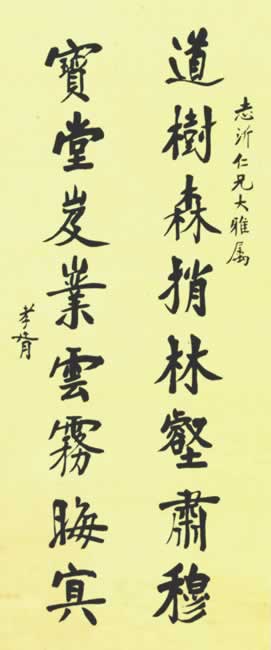 志沂仁兄大雅属
道樹森捎林壑肅穆
寶堂岌業雲霧晦冥
孝胥